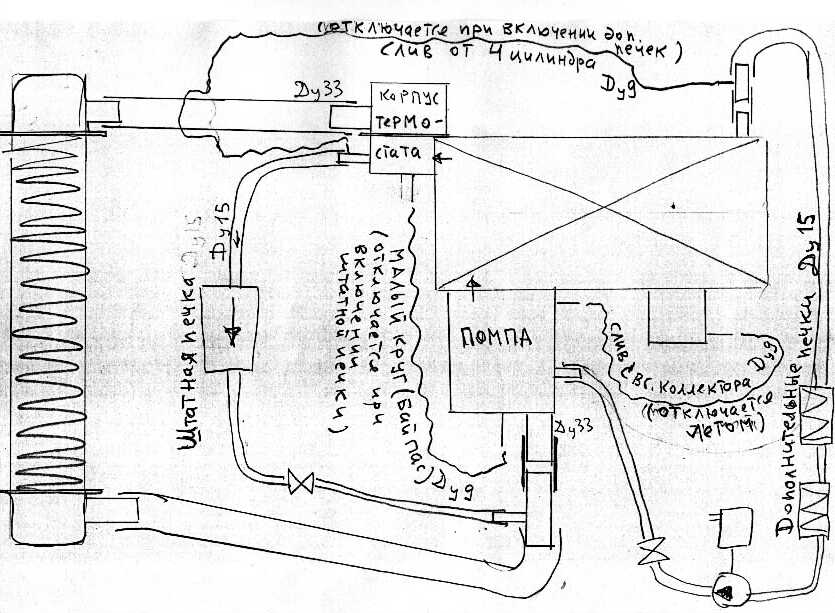 (отключается при включении доп.
печек)
слив от 4 цилиндра
Ду9
Ду33
корпус
термо-
стата
Ду15
Ду15
Штатная печка
малый круг (Байпас)
(отключается при
включении
штатной печки)
Ду9
ПОМПА
Ду33
слив с вг. коллектора
(отключается
летом)
Ду9
Дополнительные печки Ду15